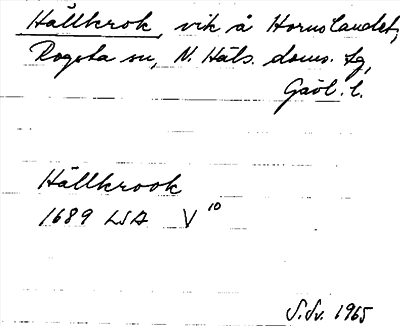 Hällkrok, vik å Hornslandet,
Rogsta sn, N. Häls. doms. tg,
Gävl. l.
Hällkrook
1689 LSA V 10
S.Sv. 1965